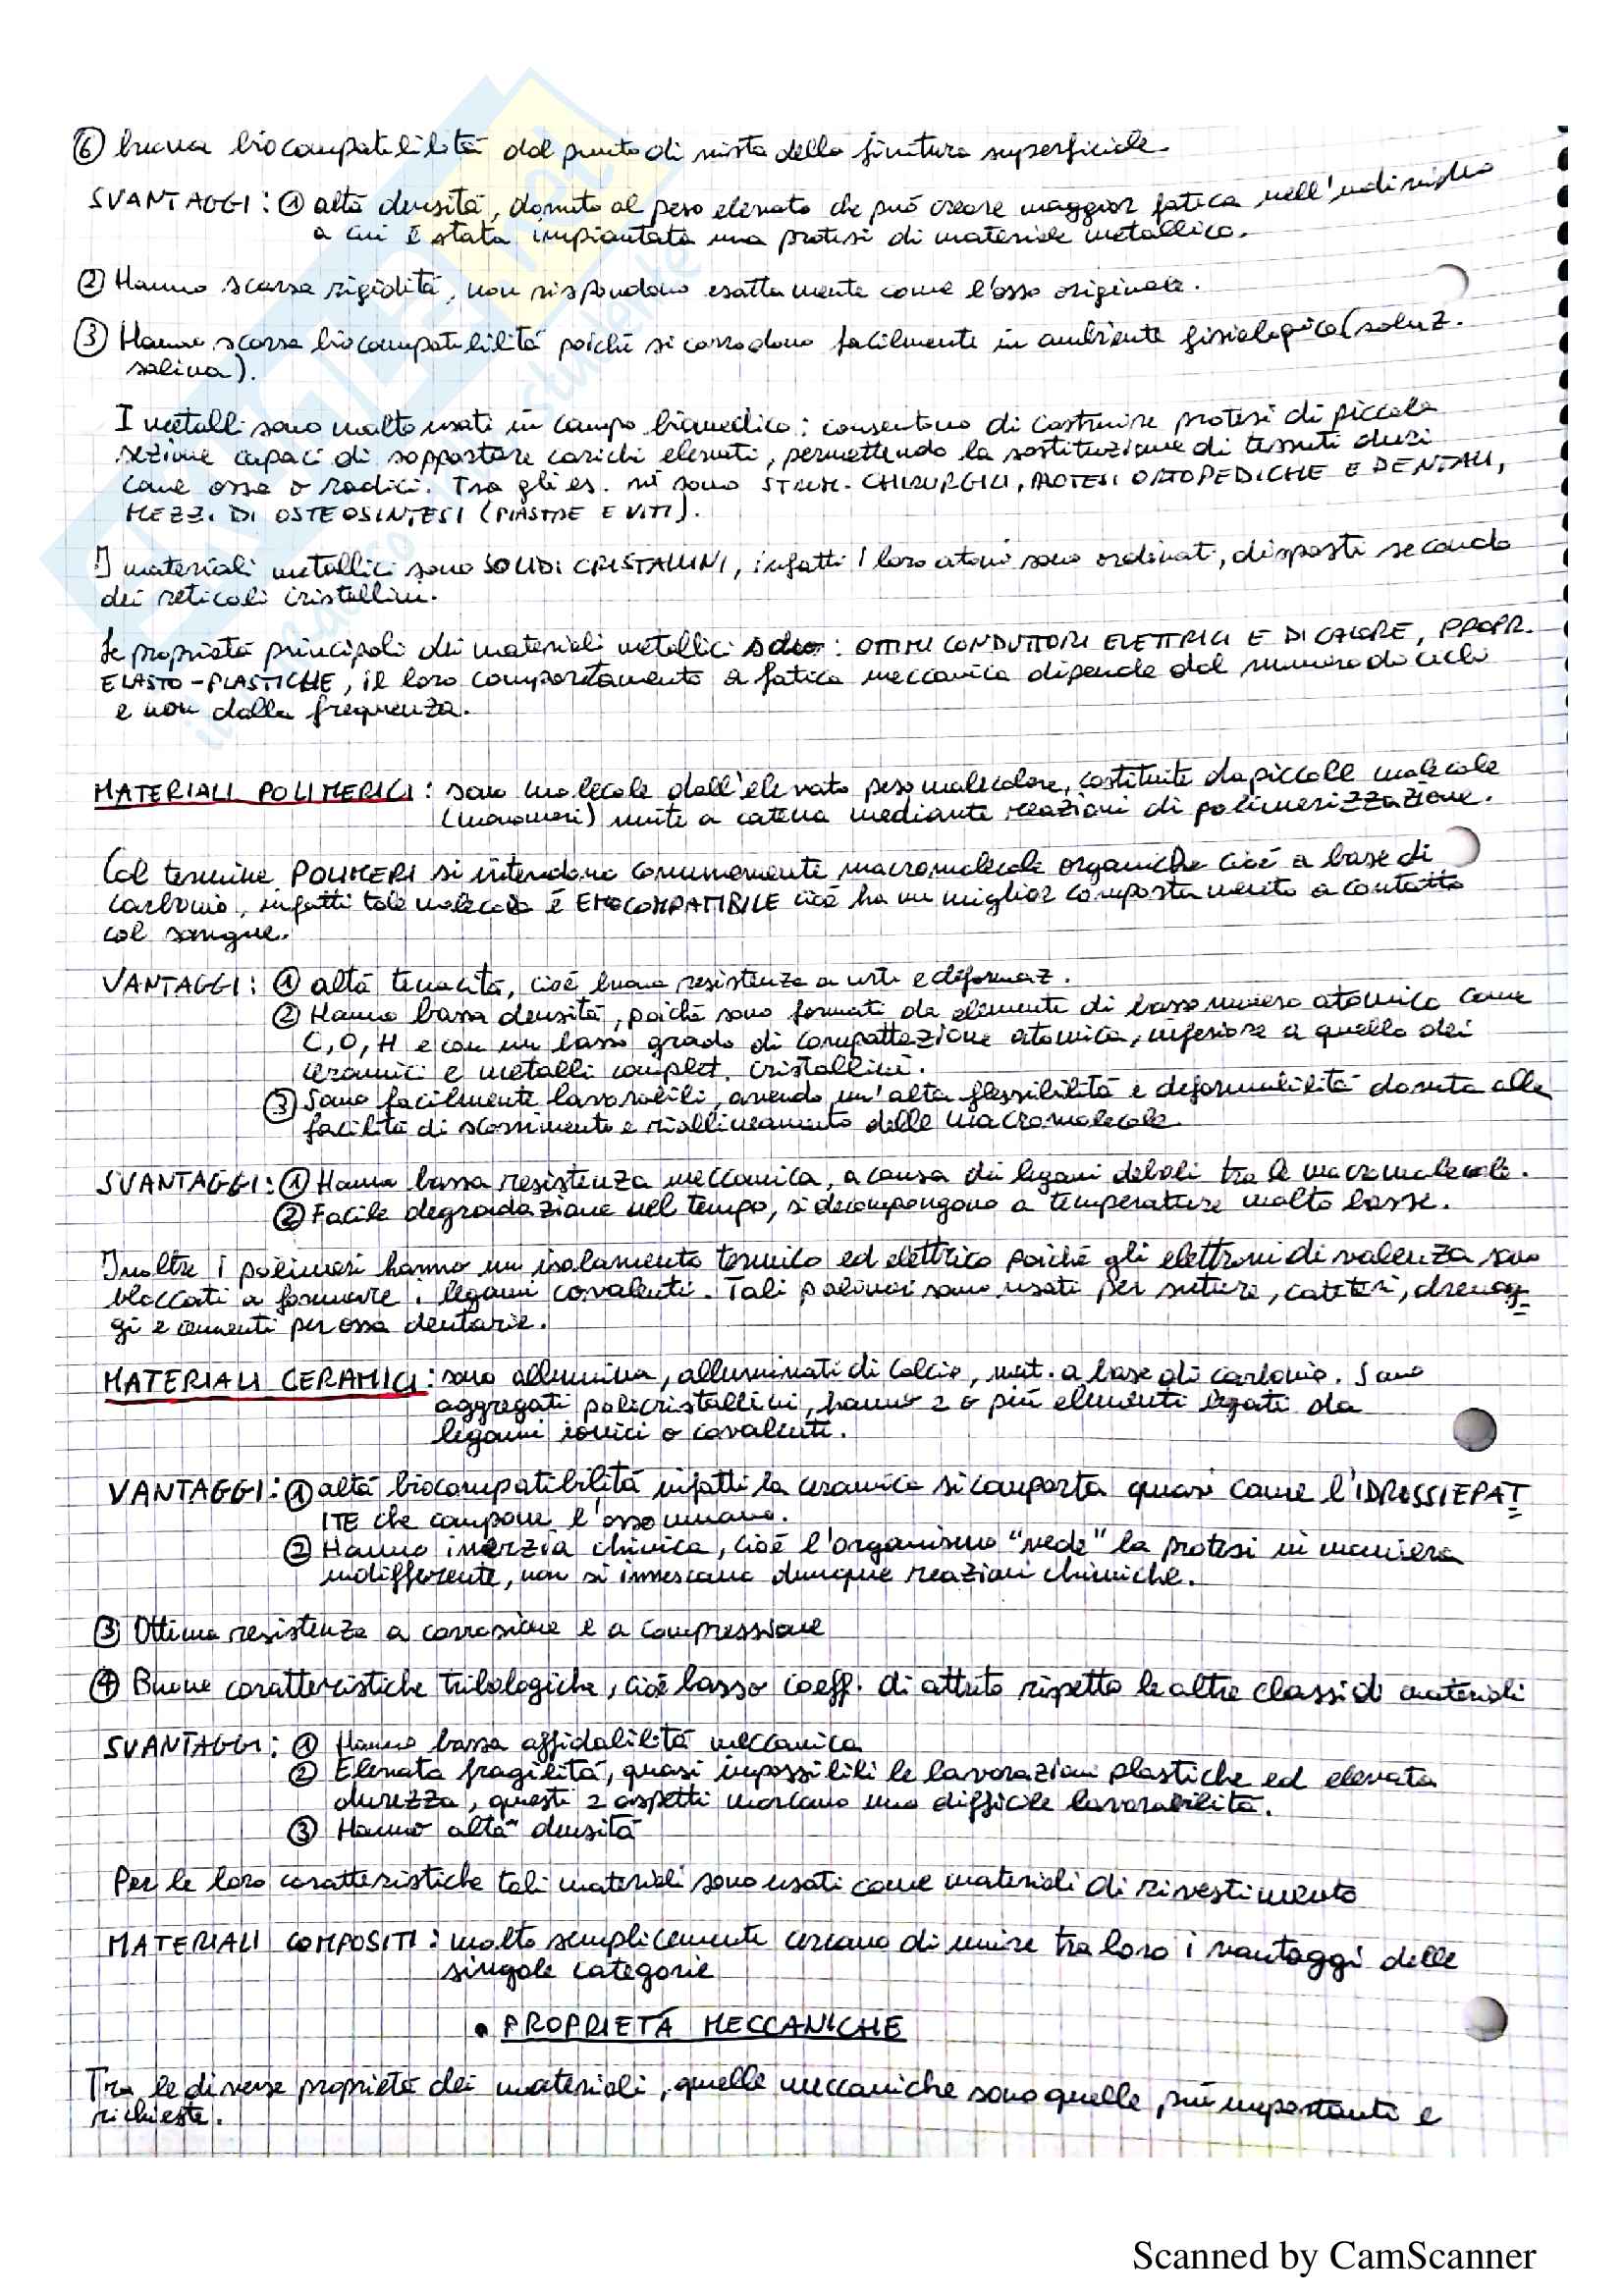 ⑥ buona biocompatibilità dal punto di vista della finitura superficiale.
SVANTAGGI: ① altà densità, dovuto al peso elevato che può creare maggior fatica nell'individuo
a cui è stata impiantata una protesi di materiale metallico.
② Hanno scarsa rigidità, non rispondono esattamente come l'osso originale.
③ Hanno scarsa biocompatibilità poiché si corrodono facilmente in ambiente fisiologico (soluz.
salina).
I metalli sono molto usati in campo biomedico: consentono di costruire protesi di piccola
sezione capaci di sopportare carichi elevati, permettendo la sostituzione di tessuti duri
come ossa o radici. Tra gli es. vi sono STRUM. CHIRURGICI, PROTESI ORTOPEDICHE E DENTALI,
MEZZI DI OSTEOSINTESI (PIASTRE E VITI).
I materiali metallici sono SOLIDI CRISTALLINI, infatti i loro atomi sono ordinati, disposti secondo
dei reticoli cristallini.
Le proprietà principali dei materiali metallici sono: OTTIMI CONDUTTORI ELETTRICI E DI CALORE, PROPR.
ELASTO-PLASTICHE, il loro comportamento a fatica meccanica dipende dal numero di cicli
e non dalla frequenza.
MATERIALI POLIMERICI: sono molecole dall'elevato peso molecolare, costituite da piccole molecole
(monomeri) unite a catena mediante reazioni di polimerizzazione.
Col termine POLIMERI si intendono comunemente macromolecole organiche cioè a base di
carbonio, infatti tale molecola è EMOCOMPATIBILE cioè ha un miglior comportamento a contatto
col sangue.
VANTAGGI: ① altà tenacità, cioè buona resistenza a urti e deformaz.
② Hanno bassa densità, poiché sono formati da elementi di basso numero atomico come
C, O, H e con un basso grado di compattazione atomica, inferiore a quello dei
ceramici e metalli complet. cristallini.
③ Sono facilmente lavorabili, avendo un'alta flessibilità e deformabilità dovuta alla
facilità di scorrimento e riallineamento delle macromolecole.
SVANTAGGI: ① Hanno bassa resistenza meccanica, a causa dei legami deboli tra le macromolecole.
② Facile degradazione nel tempo, si decompongono a temperature molto basse.
Inoltre i polimeri hanno un isolamento termico ed elettrico poiché gli elettroni di valenza sono
bloccati a formare i legami covalenti. Tali polimeri sono usati per suture, cateteri, drenag
gi e cementi per ossa dentarie.
MATERIALI CERAMICI: sono allumina, alluminati di calcio, mat. a base di carbonio. Sono
aggregati policristallini, hanno 2 o più elementi legati da
legami ionici o covalenti.
VANTAGGI: ① altà biocompatibilità infatti la ceramica si comporta quasi come l'IDROSSIEPAT
ITE che compone l'osso umano.
② Hanno inerzia chimica, cioè l'organismo "vede" la protesi in maniera
indifferente, non si innescano dunque reazioni chimiche.
③ Ottima resistenza a corrosione e a compressione
④ Buone caratteristiche tribologiche, cioè basso coeff. di attrito rispetto le altre classi di materiali
SVANTAGGI: ① Hanno bassa affidabilità meccanica
② Elevata fragilità, quasi impossibili le lavorazioni plastiche ed elevata
durezza, questi 2 aspetti marcano una difficile lavorabilità.
③ Hanno altà densità
Per le loro caratteristiche tali materiali sono usati come materiali di rivestimento
MATERIALI COMPOSITI: molto semplicemente cercano di unire tra loro i vantaggi delle
singole categorie
• PROPRIETÀ MECCANICHE
Tra le diverse proprietà dei materiali, quelle meccaniche sono quelle più importanti e
richieste.
Scanned by CamScanner